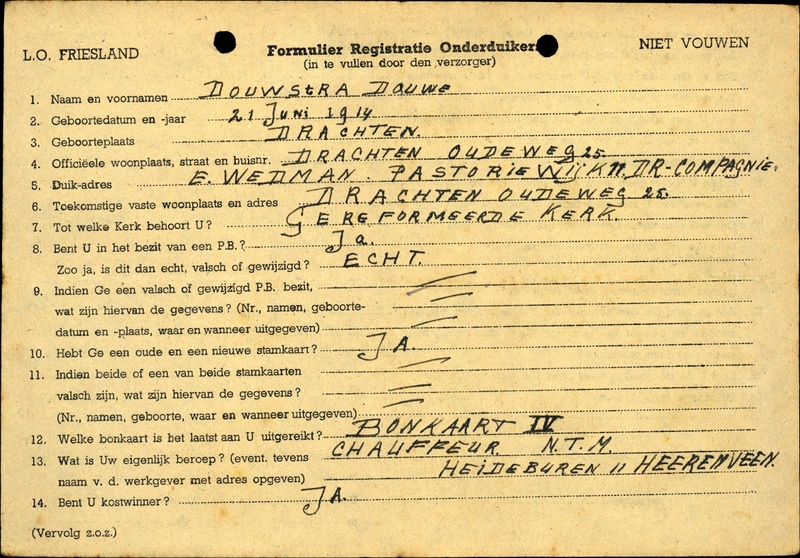 L.O. FRIESLAND
Formulier Registratie Onderduikers
NIET VOUWEN
(in te vullen door den verzorger)
1. Naam en voornamen DOUWStRA DOUWE
2. Geboortedatum en -jaar 21 Juni 1914
3. Geboorteplaats DRACHTEN.
4. Officiëele woonplaats, straat en huisnr. DRACHTEN OUDEWEG 25.
5. Duik-adres E. WEDMAN. PASTORIEWIJK 11. DR-COMPAGNIE.
6. Toekomstige vaste woonplaats en adres DRACHTEN OUDEWEG 25.
7. Tot welke Kerk behoort U? GEREFORMEERDE KERK.
8. Bent U in het bezit van een P.B.? Ja.
Zoo ja, is dit dan echt, valsch of gewijzigd? ECHT.
9. Indien Ge een valsch of gewijzigd P.B. bezit,
wat zijn hiervan de gegevens? (Nr., namen, geboorte-
datum en -plaats, waar en wanneer uitgegeven)
10. Hebt Ge een oude en een nieuwe stamkaart? JA.
11. Indien beide of een van beide stamkaarten
valsch zijn, wat zijn hiervan de gegevens?
(Nr., namen, geboorte, waar en wanneer uitgegeven)
12. Welke bonkaart is het laatst aan U uitgereikt? BONKAART IV
13. Wat is Uw eigenlijk beroep? (event. tevens CHAUFFEUR N.T.M.
naam v. d. werkgever met adres opgeven) HEIDEBUREN 11 HEERENVEEN.
14. Bent U kostwinner? JA.
(Vervolg z.o.z.)